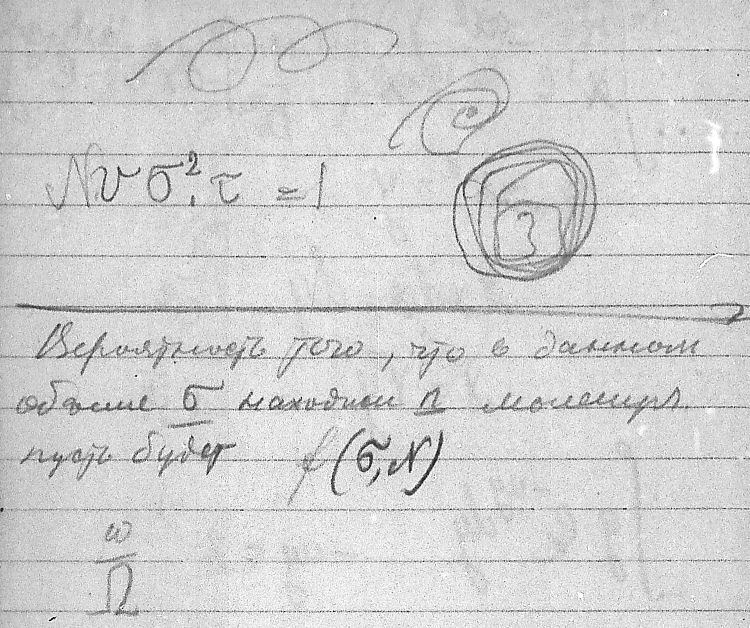 Nvσ².τ = 1
3
Вероятность того, что в данном
объеме σ находится n молекул
пусть будет f(σ,N)
ω
Ω